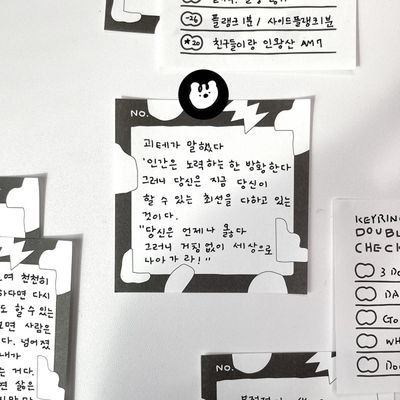 -26 플랭크 1분 / 사이드플랭크 1분
*20 친구들이랑 인왕산 AM7
NO.
괴테가 말했다
'인간은 노력하는 한 방황한다
그러니 당신은 지금 당신이
할 수 있는 최선을 다하고 있는
것이다.
"당신은 언제나 옳다
그러니 거침없이 세상으로
나아가라!"
며 천천히
하다면 다시
도 할 수 있는
보면 사람은
다. 넘어졌
내가
는 거다.
면 삶은
KEYRING
DOUBLE
CHECK
3 DO
DA
GO
WH
DO
NO.